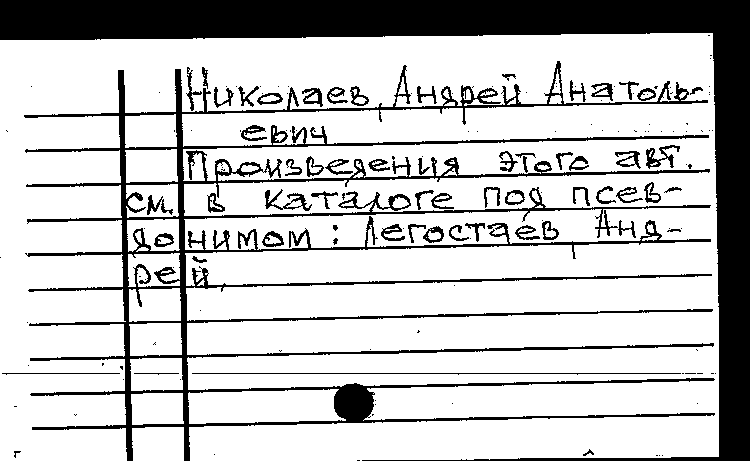 Николаев, Андрей Анатоль-
евич
Произведения этого авт.
см. в каталоге под псев-
донимом: Легостаев, Анд-
рей.